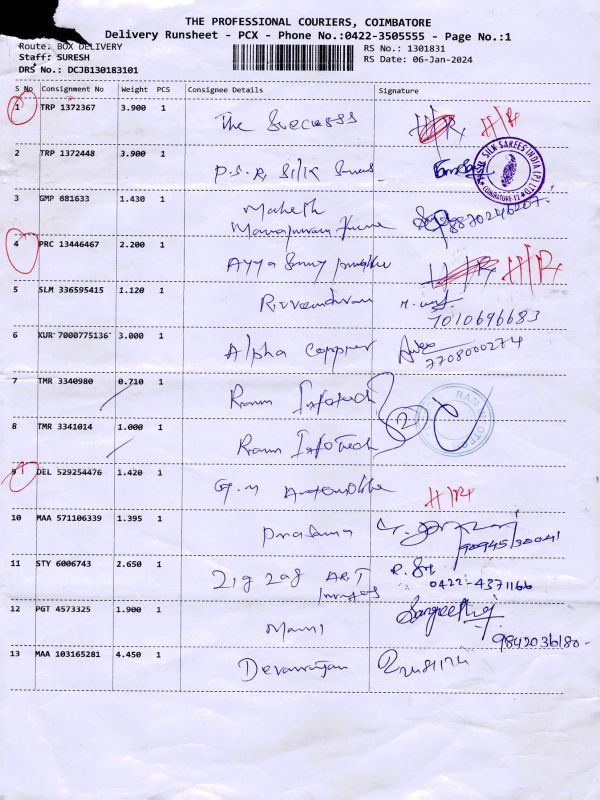 THE PROFESSIONAL COURIERS, COIMBATORE
Delivery Runsheet - PCX - Phone No.:0422-3505555 - Page No.:1
Route: BOX DELIVERY
RS No.: 1301831
Staff: SURESH
RS Date: 06-Jan-2024
DRS No.: DCJB130183101
S No Consignment No Weight PCS Consignee Details Signature
1 TRP 1372367 3.900 1 The Success H/R H/R
2 TRP 1372448 3.900 1 P.S.R Silk
SILK SAREES INDIA (P) LTD
COIMBATORE
3 GMP 681633 1.430 1 Mahesh
4 PRC 13446467 2.200 1 Ayya H/R H/R
5 SLM 336595415 1.120 1
7010696683
6 KUR 7000775136 3.000 1 Alpha Copper
7708000274
7 TMR 3340980 0.710 1 Ram Infotech
2
8 TMR 3341014 1.000 1 Ram InfoTech
9 DEL 529254476 1.420 1 G.M Automobile H/R
10 MAA 571106339 1.395 1 Prasanna
11 STY 6006743 2.650 1 Zig Zag ART
0422-4371166
12 PGT 4573325 1.900 1 Mani Sangeetha
9842036180
13 MAA 103165281 4.450 1 Devarajan